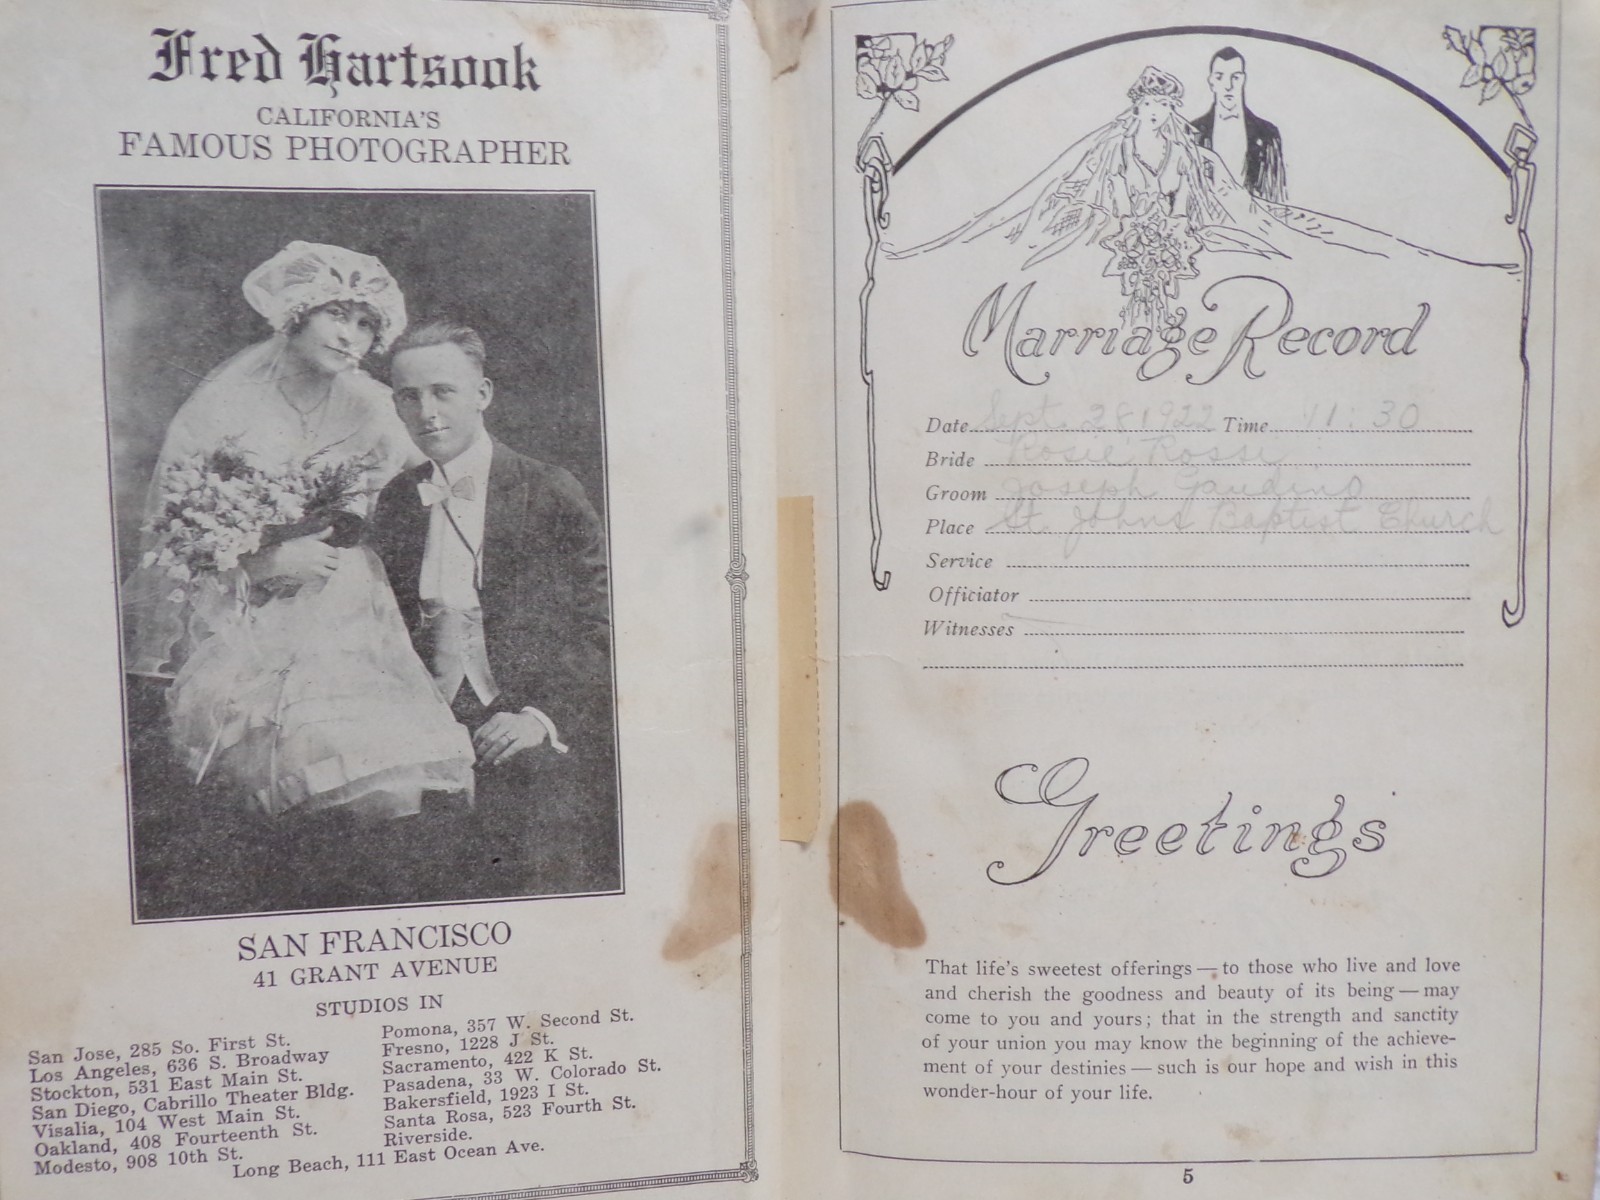 Fred Hartsook
CALIFORNIA'S
FAMOUS PHOTOGRAPHER
SAN FRANCISCO
41 GRANT AVENUE
STUDIOS IN
San Jose, 285 So. First St.
Los Angeles, 636 S. Broadway
Stockton, 531 East Main St.
San Diego, Cabrillo Theater Bldg.
Visalia, 104 West Main St.
Oakland, 408 Fourteenth St.
Modesto, 908 10th St.
Pomona, 357 W. Second St.
Fresno, 1228 J St.
Sacramento, 422 K St.
Pasadena, 33 W. Colorado St.
Bakersfield, 1923 I St.
Santa Rosa, 523 Fourth St.
Riverside.
Long Beach, 111 East Ocean Ave.
Marriage Record
Date Sept. 28 1922 Time 11:30
Bride Rosie Rossi
Groom Joseph Gaudino
Place St. Johns Baptist Church
Service
Officiator
Witnesses
Greetings
That life's sweetest offerings — to those who live and love
and cherish the goodness and beauty of its being — may
come to you and yours; that in the strength and sanctity
of your union you may know the beginning of the achieve-
ment of your destinies — such is our hope and wish in this
wonder-hour of your life.
5